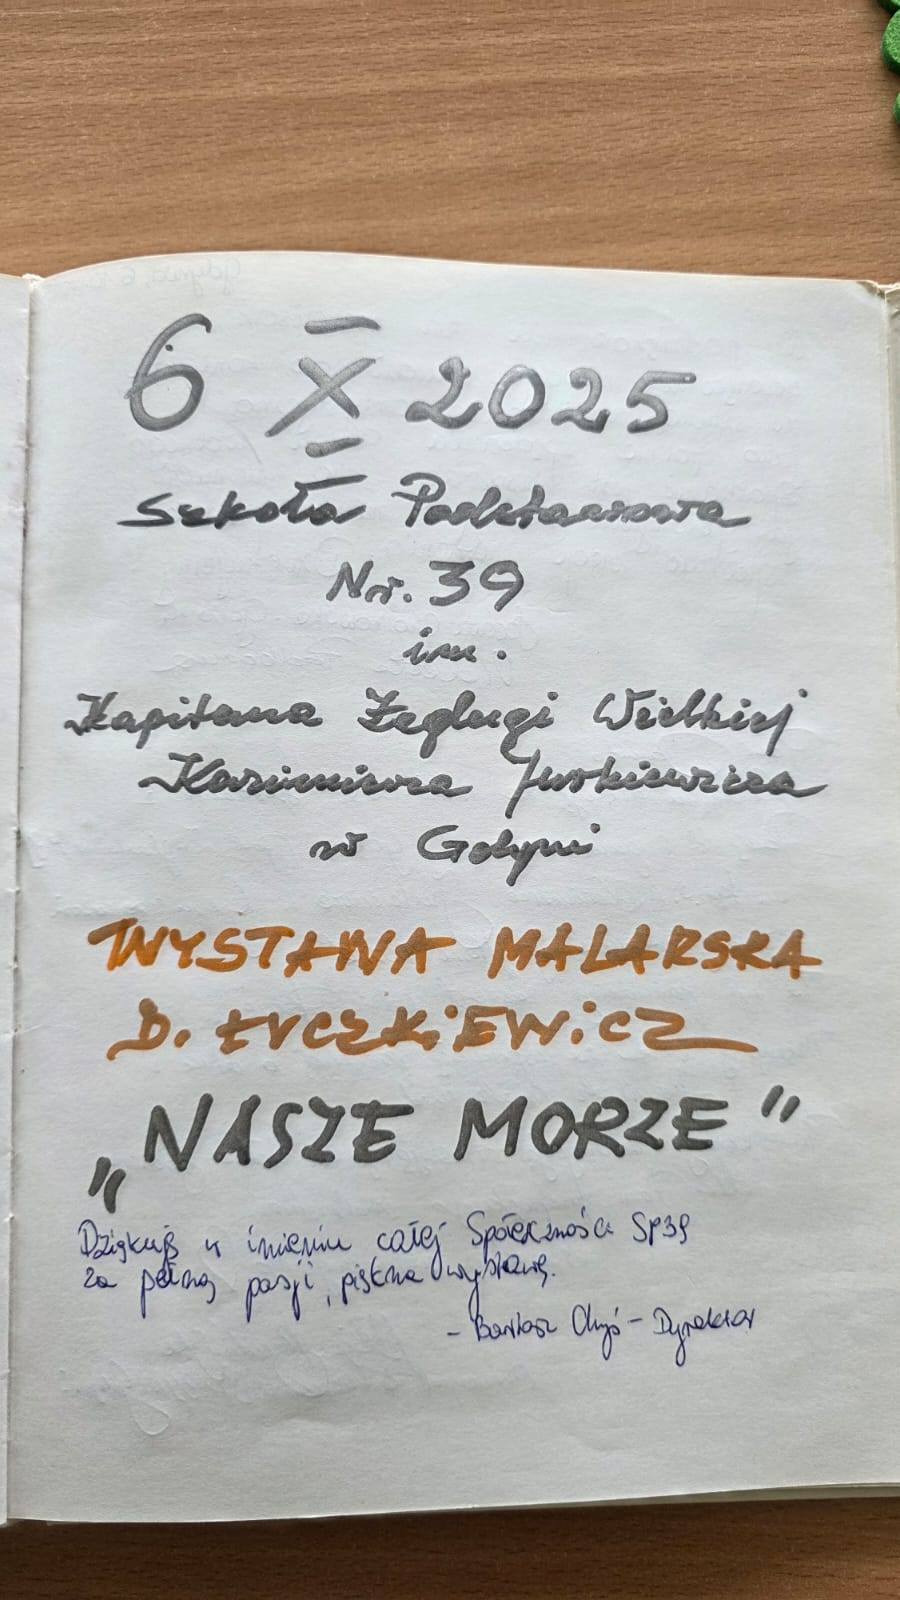 6 X 2025
Szkoła Podstawowa
Nr. 39
im.
Kapitana Żeglugi Wielkiej
Kazimierza Jurkiewicza
w Gdyni
WYSTAWA MALARSKA
D. ŁYCZKIEWICZ
„NASZE MORZE"
Dziękuję w imieniu całej Społeczności SP39
za pełną pasji, piękną wystawę.
- Bartosz - Dyrektor